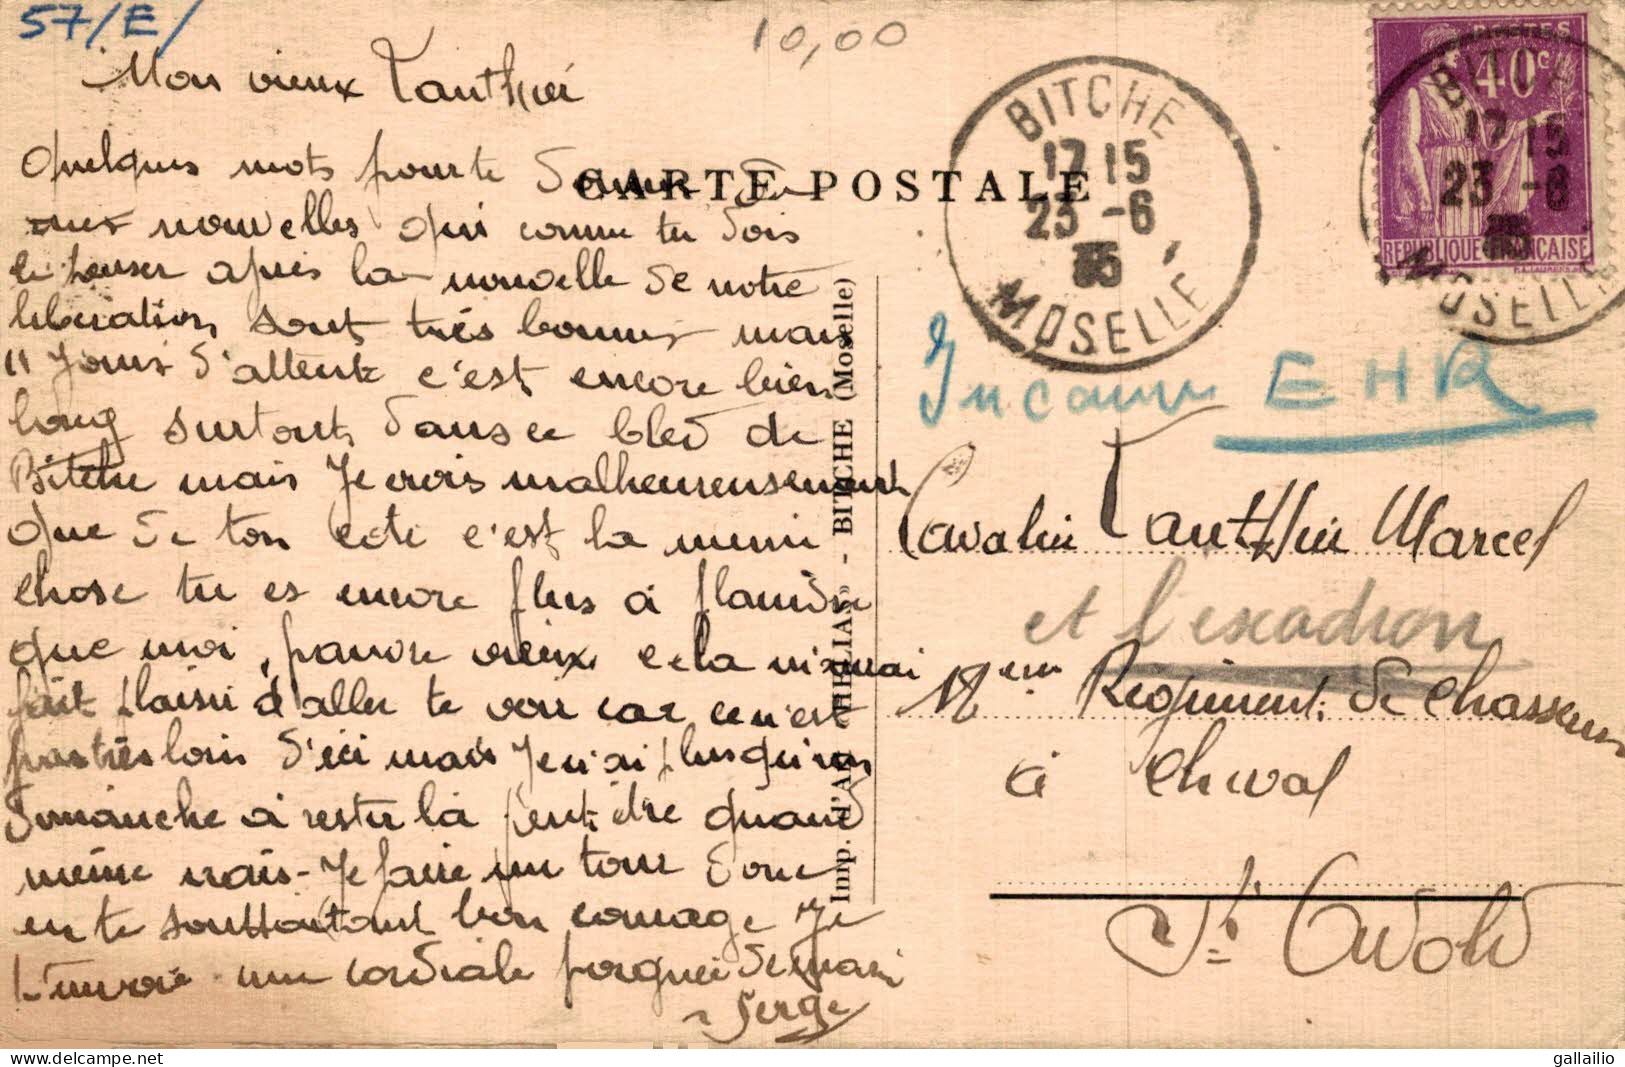 57/E/
10,00
Mon vieux Tanthier
quelques mots pour te donner de
mes nouvelles qui comme tu dois
le penser après la nouvelle de notre
libération sont très bonnes mais
11 jours d'attente c'est encore bien
long surtout dans ce bled de
Bitche mais je crois malheureusement
que de ton coté c'est la meme
chose tu es encore plus à plaindre
que moi, pauvre vieux cela m'aurai
fait plaisir d'aller te voir car ce n'est
pas très loin d'ici mais je n'ai plus qu'un
dimanche à rester là peut-être quand
même mais je faire un tour donc
en te souhaitant bon courage je
t'envoie une cordiale poignée de main
Serge
CARTE POSTALE
Imp. d'Art - BITCHE (Moselle)
BITCHE
17 15
23 -6
35
MOSELLE
POSTES
40c
REPUBLIQUE FRANÇAISE
BITCHE
17 15
23 -6
35
MOSELLE
Inconnu EHR
Cavalier Tanthier Marcel
et l'escadron
18eme Regiment de Chasseurs
à Cheval
St Avold
gallailio